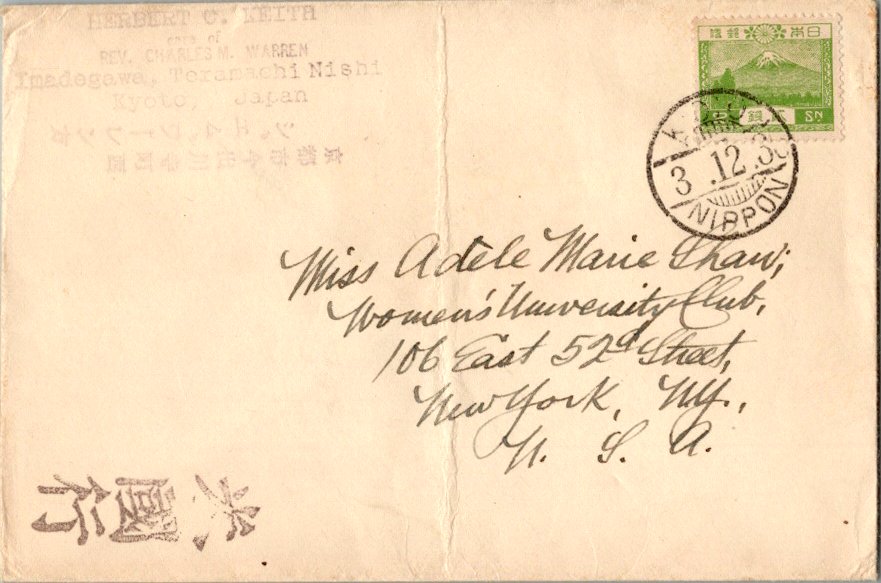 HERBERT C. KEITH
care of
REV. CHARLES M. WARREN
Imadegawa, Teramachi Nishi
Kyoto, Japan
日本郵便
2 SN
3.12.30
NIPPON
Miss Adele Marie Shaw,
Women's University Club,
106 East 52d Street,
New York, N.Y.,
U. S. A.
米國行